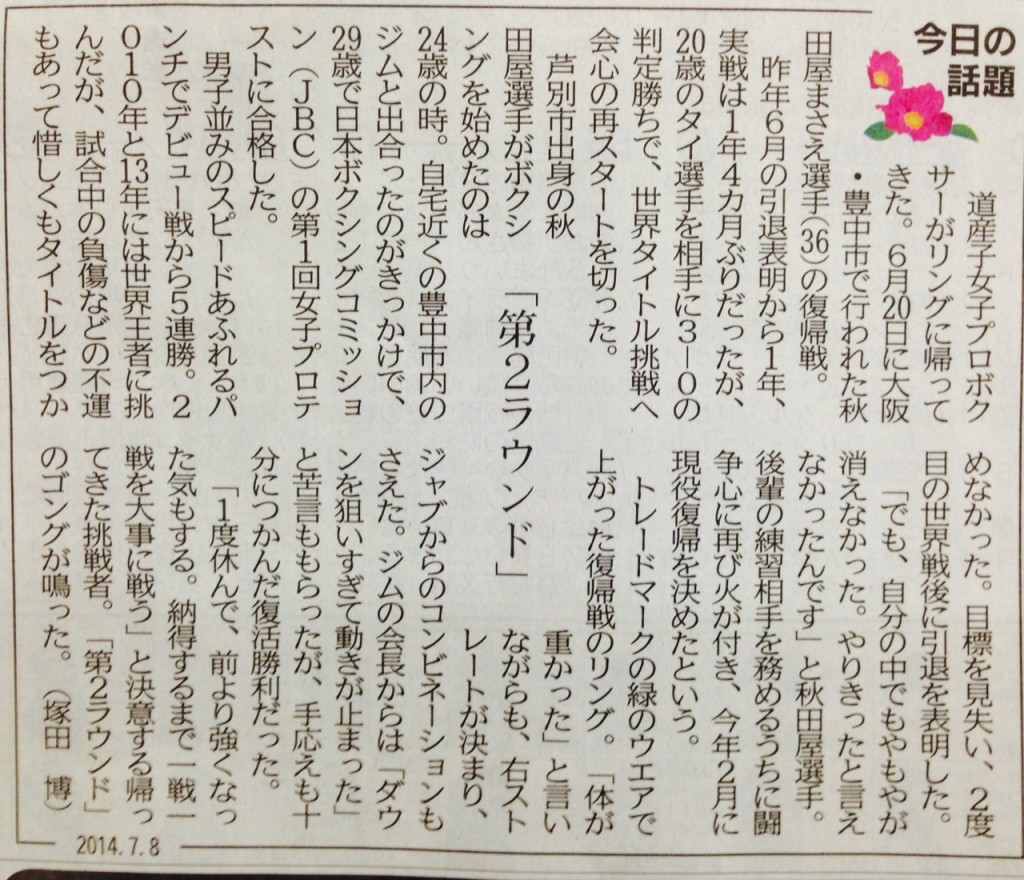 今日の
話題
「第2ラウンド」
道産子女子プロボク
サーがリングに帰って
きた。6月20日に大阪
・豊中市で行われた秋
田屋まさえ選手(36)の復帰戦。
昨年6月の引退表明から1年、
実戦は1年4カ月ぶりだったが、
20歳のタイ選手を相手に3−0の
判定勝ちで、世界タイトル挑戦へ
会心の再スタートを切った。
芦別市出身の秋
田屋選手がボクシ
ングを始めたのは
24歳の時。自宅近くの豊中市内の
ジムと出合ったのがきっかけで、
29歳で日本ボクシングコミッショ
ン(JBC)の第1回女子プロテ
ストに合格した。
男子並みのスピードあふれるパ
ンチでデビュー戦から5連勝。2
010年と13年には世界王者に挑
んだが、試合中の負傷などの不運
もあって惜しくもタイトルをつか
めなかった。目標を見失い、2度
目の世界戦後に引退を表明した。
「でも、自分の中でもやもやが
消えなかった。やりきったと言え
なかったんです」と秋田屋選手。
後輩の練習相手を務めるうちに闘
争心に再び火が付き、今年2月に
現役復帰を決めたという。
トレードマークの緑のウエアで
上がった復帰戦のリング。「体が
重かった」と言い
ながらも、右スト
レートが決まり、
ジャブからのコンビネーションも
さえた。ジムの会長からは「ダウ
ンを狙いすぎて動きが止まった」
と苦言ももらったが、手応えも十
分につかんだ復活勝利だった。
「1度休んで、前より強くなっ
た気もする。納得するまで一戦一
戦を大事に戦う」と決意する帰っ
てきた挑戦者。「第2ラウンド」
のゴングが鳴った。(塚田 博)
2014.7.8